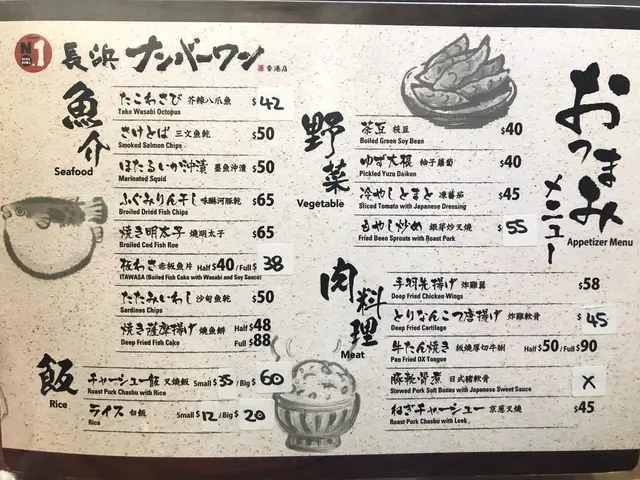 N 1
長浜 ナンバーワン 香港店
魚介
Seafood
たこわさび 芥辣八爪魚 $42
Tako Wasabi Octopus
さけとば 三文魚乾 $50
Smoked Salmon Chips
ほたるいか沖漬 墨魚沖漬 $50
Marinated Squid
ふぐみりん干し 味醂河豚乾 $65
Broiled Dried Fish Chips
焼き明太子 燒明太子 $65
Broiled Cod Fish Roe
板わさ 赤板魚片 Half $40 / Full $ 38
ITAWASA (Boiled Fish Cake with Wasabi and Soy Sauce)
たたみいわし 沙甸魚乾 $50
Sardines Chips
焼き薩摩揚げ 燒魚餅 Half $48
Deep Fried Fish Cake Full $88
飯
Rice
チャーシュー飯 叉燒飯 Small $35 / Big $ 60
Roast Pork Chashu with Rice
ライス 白飯 Small $12 / Big $ 20
Rice
野菜
Vegetable
茶豆 枝豆 $40
Boiled Green Soy Bean
ゆず大根 柚子蘿蔔 $40
Pickled Yuzu Daikon
冷やしとまと 凍蕃茄 $45
Sliced Tomato with Japanese Dressing
もやし炒め 銀芽炒叉燒 $55
Fried Bean Sprouts with Roast Pork
肉料理
Meat
手羽先揚げ 炸雞翼 $58
Deep Fried Chicken Wings
とりなんこつ唐揚げ 炸雞軟骨 $45
Deep Fried Cartilage
牛たん焼き 板燒厚切牛脷 Half $50 / Full $90
Pan Fried OX Tongue
豚軟骨煮 日式豬軟骨 X
Stewed Pork Soft Bones with Japanese Sweet Sauce
ねぎチャーシュー 京葱叉燒 $45
Roast Pork Chashu with Leek
おつまみ
メニュー
Appetizer Menu